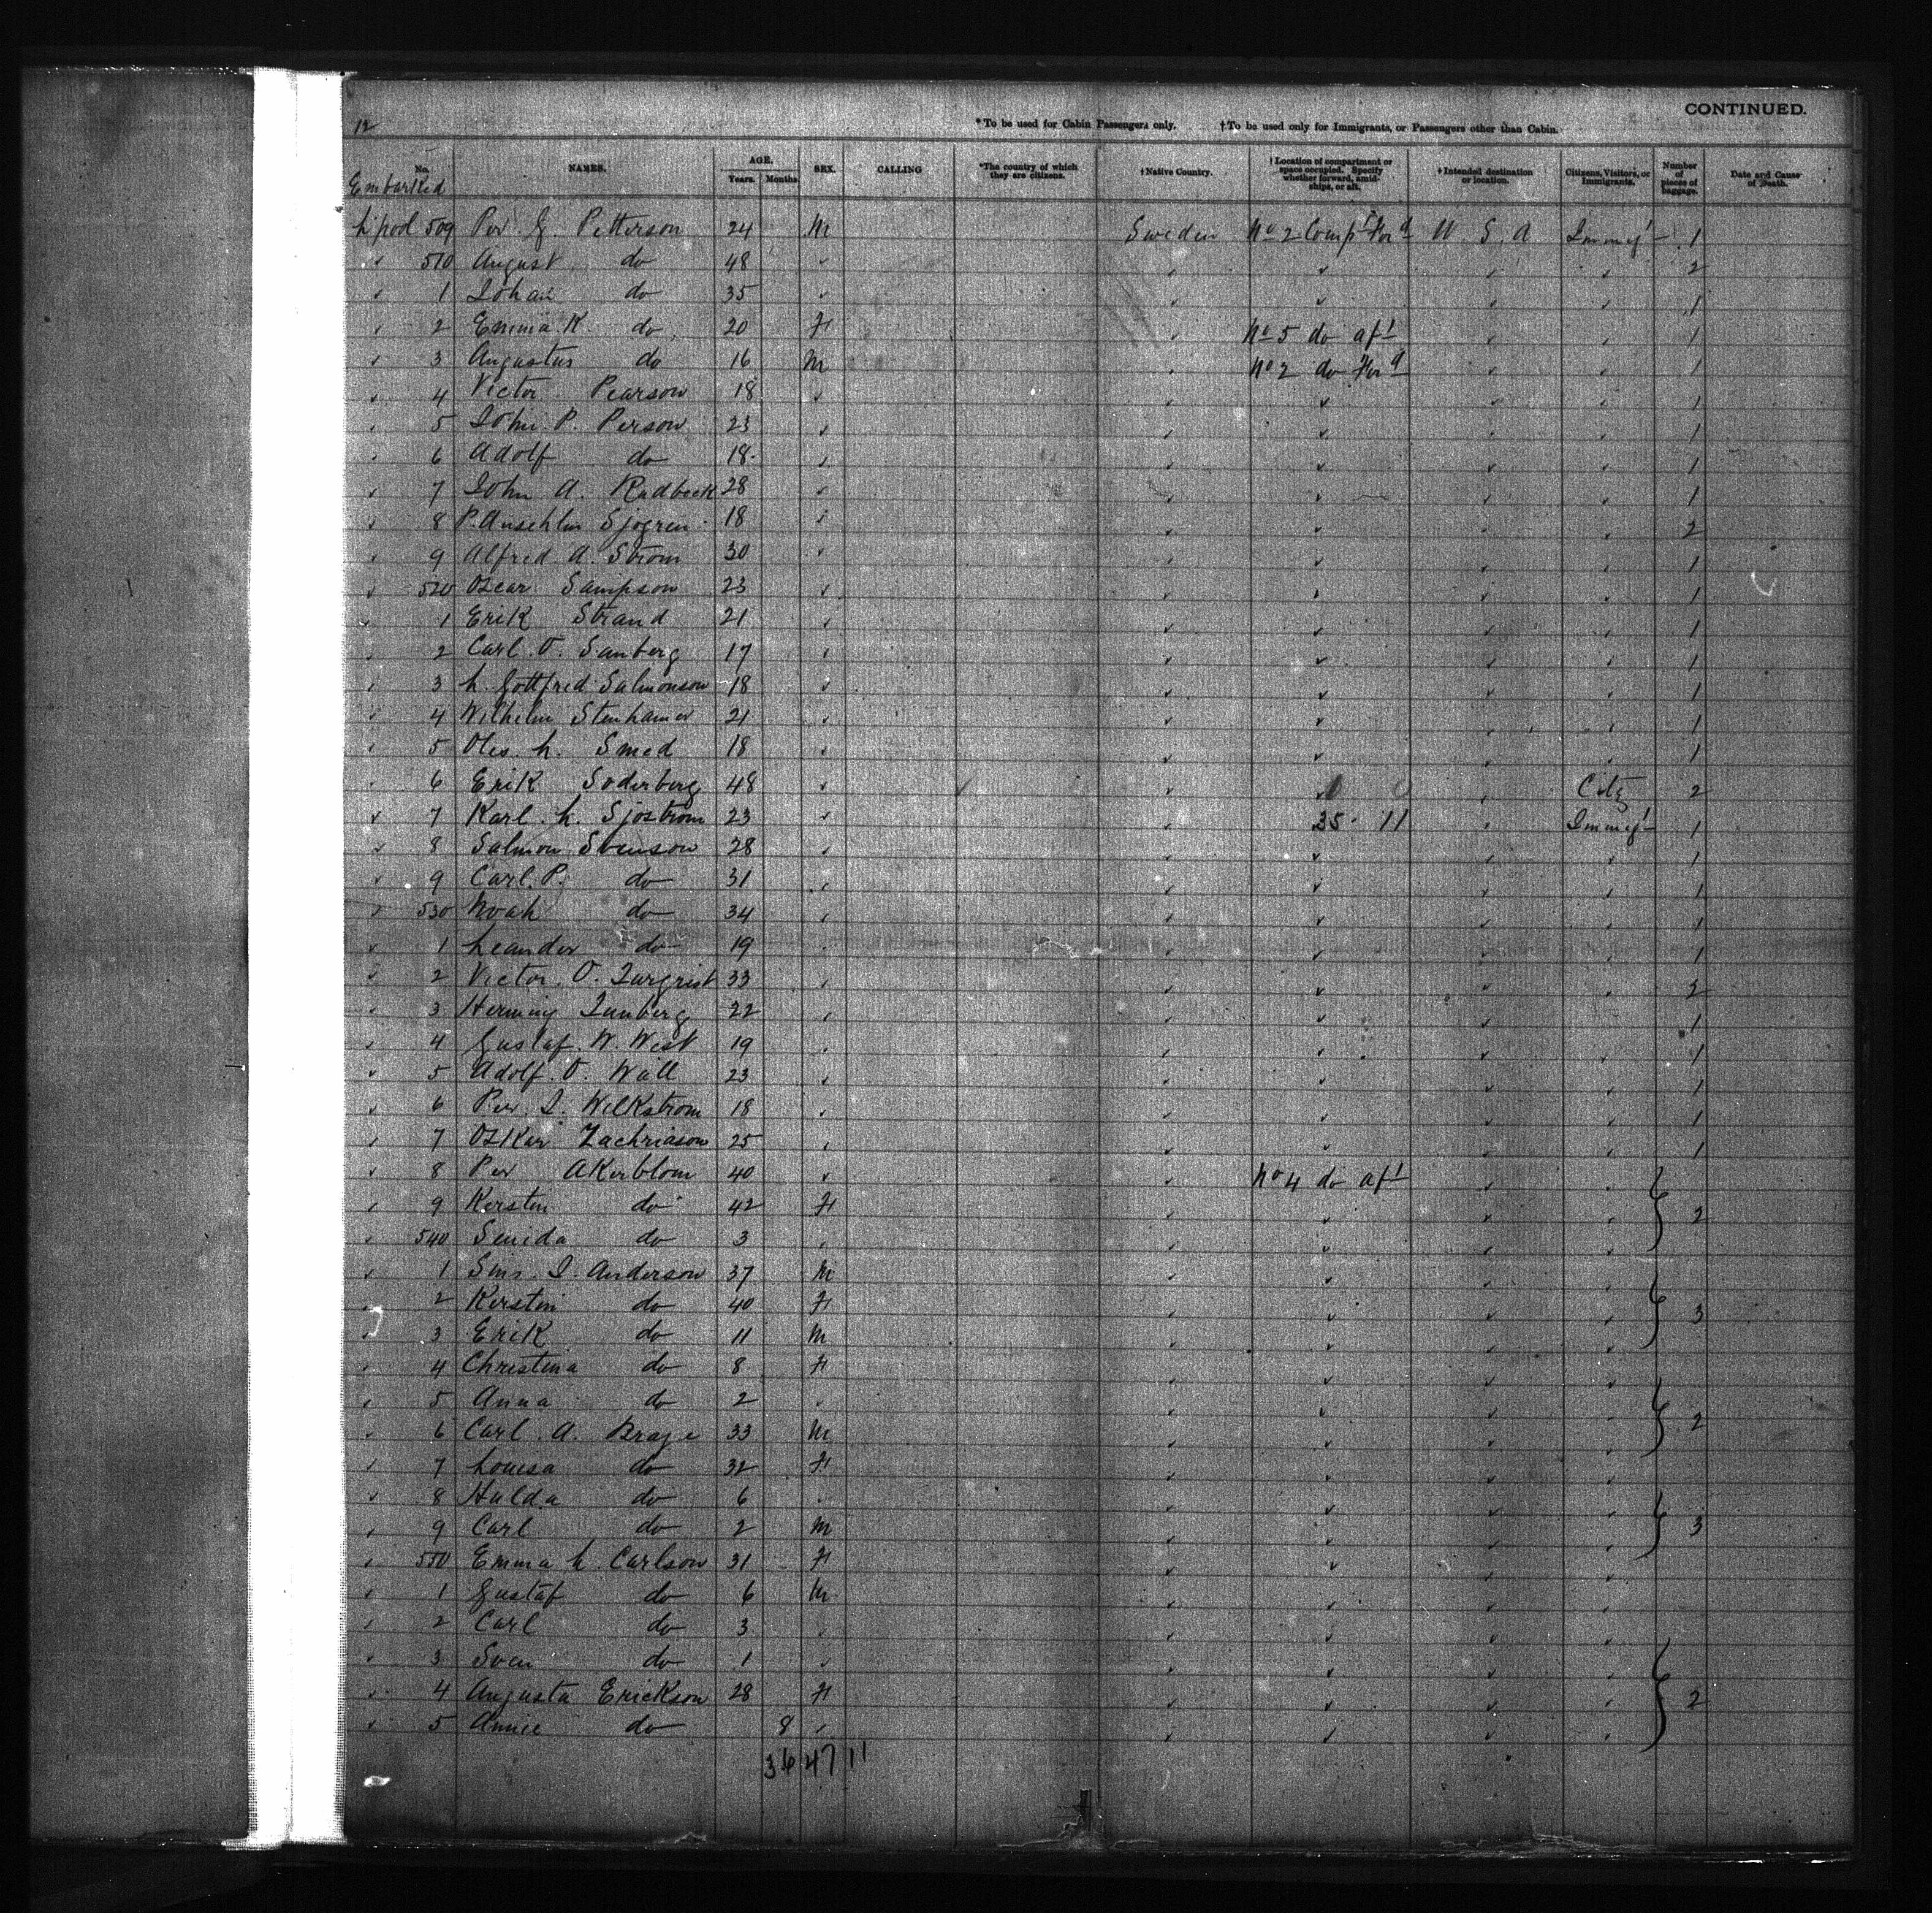 CONTINUED.
12
* To be used for Cabin Passengers only. † To be used only for Immigrants, or Passengers other than Cabin.
No. NAMES. AGE. Years. Months SEX. CALLING *The country of which they are citizens. † Native Country. † Location of compartment or space occupied. Specify whether forward, amidships, or aft. † Intended destination or location. Citizens, Visitors, or Immigrants. Number of pieces of baggage. Date and Cause of Death.
Embarked
L'pool 509 Per G. Petterson 24 M Sweden No 2 Compt For'd U. S. A Immigt 1
✓ 510 August do 48 ✓ ✓ ✓ ✓ ✓ 2
✓ 1 Johan do 35 ✓ ✓ ✓ ✓ ✓ 1
✓ 2 Emma K. do 20 F ✓ No 5 do aft ✓ ✓ 1
✓ 3 Augustus do 16 M ✓ No 2 do For'd ✓ ✓ 1
✓ 4 Victor Pearson 18 ✓ ✓ ✓ ✓ ✓ 1
✓ 5 John P. Person 23 ✓ ✓ ✓ ✓ ✓ 1
✓ 6 Adolf do 18 ✓ ✓ ✓ ✓ ✓ 1
✓ 7 John A. Rudbeck 28 ✓ ✓ ✓ ✓ ✓ 1
✓ 8 P. Anschlm Sjogren 18 ✓ ✓ ✓ ✓ ✓ 2
✓ 9 Alfred A. Strom 30 ✓ ✓ ✓ ✓ ✓ 1
✓ 520 Oscar Sampson 23 ✓ ✓ ✓ ✓ ✓ 1
✓ 1 Erik Strand 21 ✓ ✓ ✓ ✓ ✓ 1
✓ 2 Carl O. Sanberg 17 ✓ ✓ ✓ ✓ ✓ 1
✓ 3 L. Gottfred Salmonson 18 ✓ ✓ ✓ ✓ ✓ 1
✓ 4 Wilhelm Stenhamer 21 ✓ ✓ ✓ ✓ ✓ 1
✓ 5 Oles L. Smed 18 ✓ ✓ ✓ ✓ ✓ 1
✓ 6 Erik Soderberg 48 ✓ ✓ ✓ ✓ City 2
✓ 7 Karl L. Sjostrom 23 ✓ ✓ 35 11 ✓ Immigt 1
✓ 8 Salmon Svenson 28 ✓ ✓ ✓ ✓ ✓ 1
✓ 9 Carl P. do 31 ✓ ✓ ✓ ✓ ✓ 1
✓ 530 Noah do 34 ✓ ✓ ✓ ✓ ✓ 1
✓ 1 Leander do 19 ✓ ✓ ✓ ✓ ✓ 1
✓ 2 Victor O. 33 ✓ ✓ ✓ ✓ ✓ 2
✓ 3 22 ✓ ✓ ✓ ✓ ✓ 1
✓ 4 Gustaf W. West 19 ✓ ✓ ✓ ✓ ✓ 1
✓ 5 Adolf O. Wall 23 ✓ ✓ ✓ ✓ ✓ 1
✓ 6 Per I. Wilkstrom 18 ✓ ✓ ✓ ✓ ✓ 1
✓ 7 Oskar Zachriason 25 ✓ ✓ ✓ ✓ ✓ 1
✓ 8 Per Akerblom 40 ✓ ✓ No 4 do aft ✓ ✓
✓ 9 Kersten do 42 F ✓ ✓ ✓ ✓ 2
✓ 540 do 3 ✓ ✓ ✓ ✓ ✓
✓ 1 I. Anderson 37 M ✓ ✓ ✓ ✓
✓ 2 Kersten do 40 F ✓ ✓ ✓ ✓ 3
✓ 3 Erik do 11 M ✓ ✓ ✓ ✓
✓ 4 Christina do 8 F ✓ ✓ ✓ ✓
✓ 5 Anna do 2 ✓ ✓ ✓ ✓ ✓
✓ 6 Carl A. Brage 33 M ✓ ✓ ✓ ✓ 2
✓ 7 Louesa do 32 F ✓ ✓ ✓ ✓
✓ 8 Hulda do 6 ✓ ✓ ✓ ✓ ✓
✓ 9 Carl do 2 M ✓ ✓ ✓ ✓ 3
✓ 550 Emma L. Carlson 31 F ✓ ✓ ✓ ✓
✓ 1 Gustaf do 6 M ✓ ✓ ✓ ✓
✓ 2 Carl do 3 ✓ ✓ ✓ ✓ ✓
✓ 3 Sven do 1 ✓ ✓ ✓ ✓ ✓
✓ 4 Augusta Erickson 28 F ✓ ✓ ✓ ✓ 2
✓ 5 Annie do 8 ✓ ✓ ✓ ✓ ✓
36 47 11